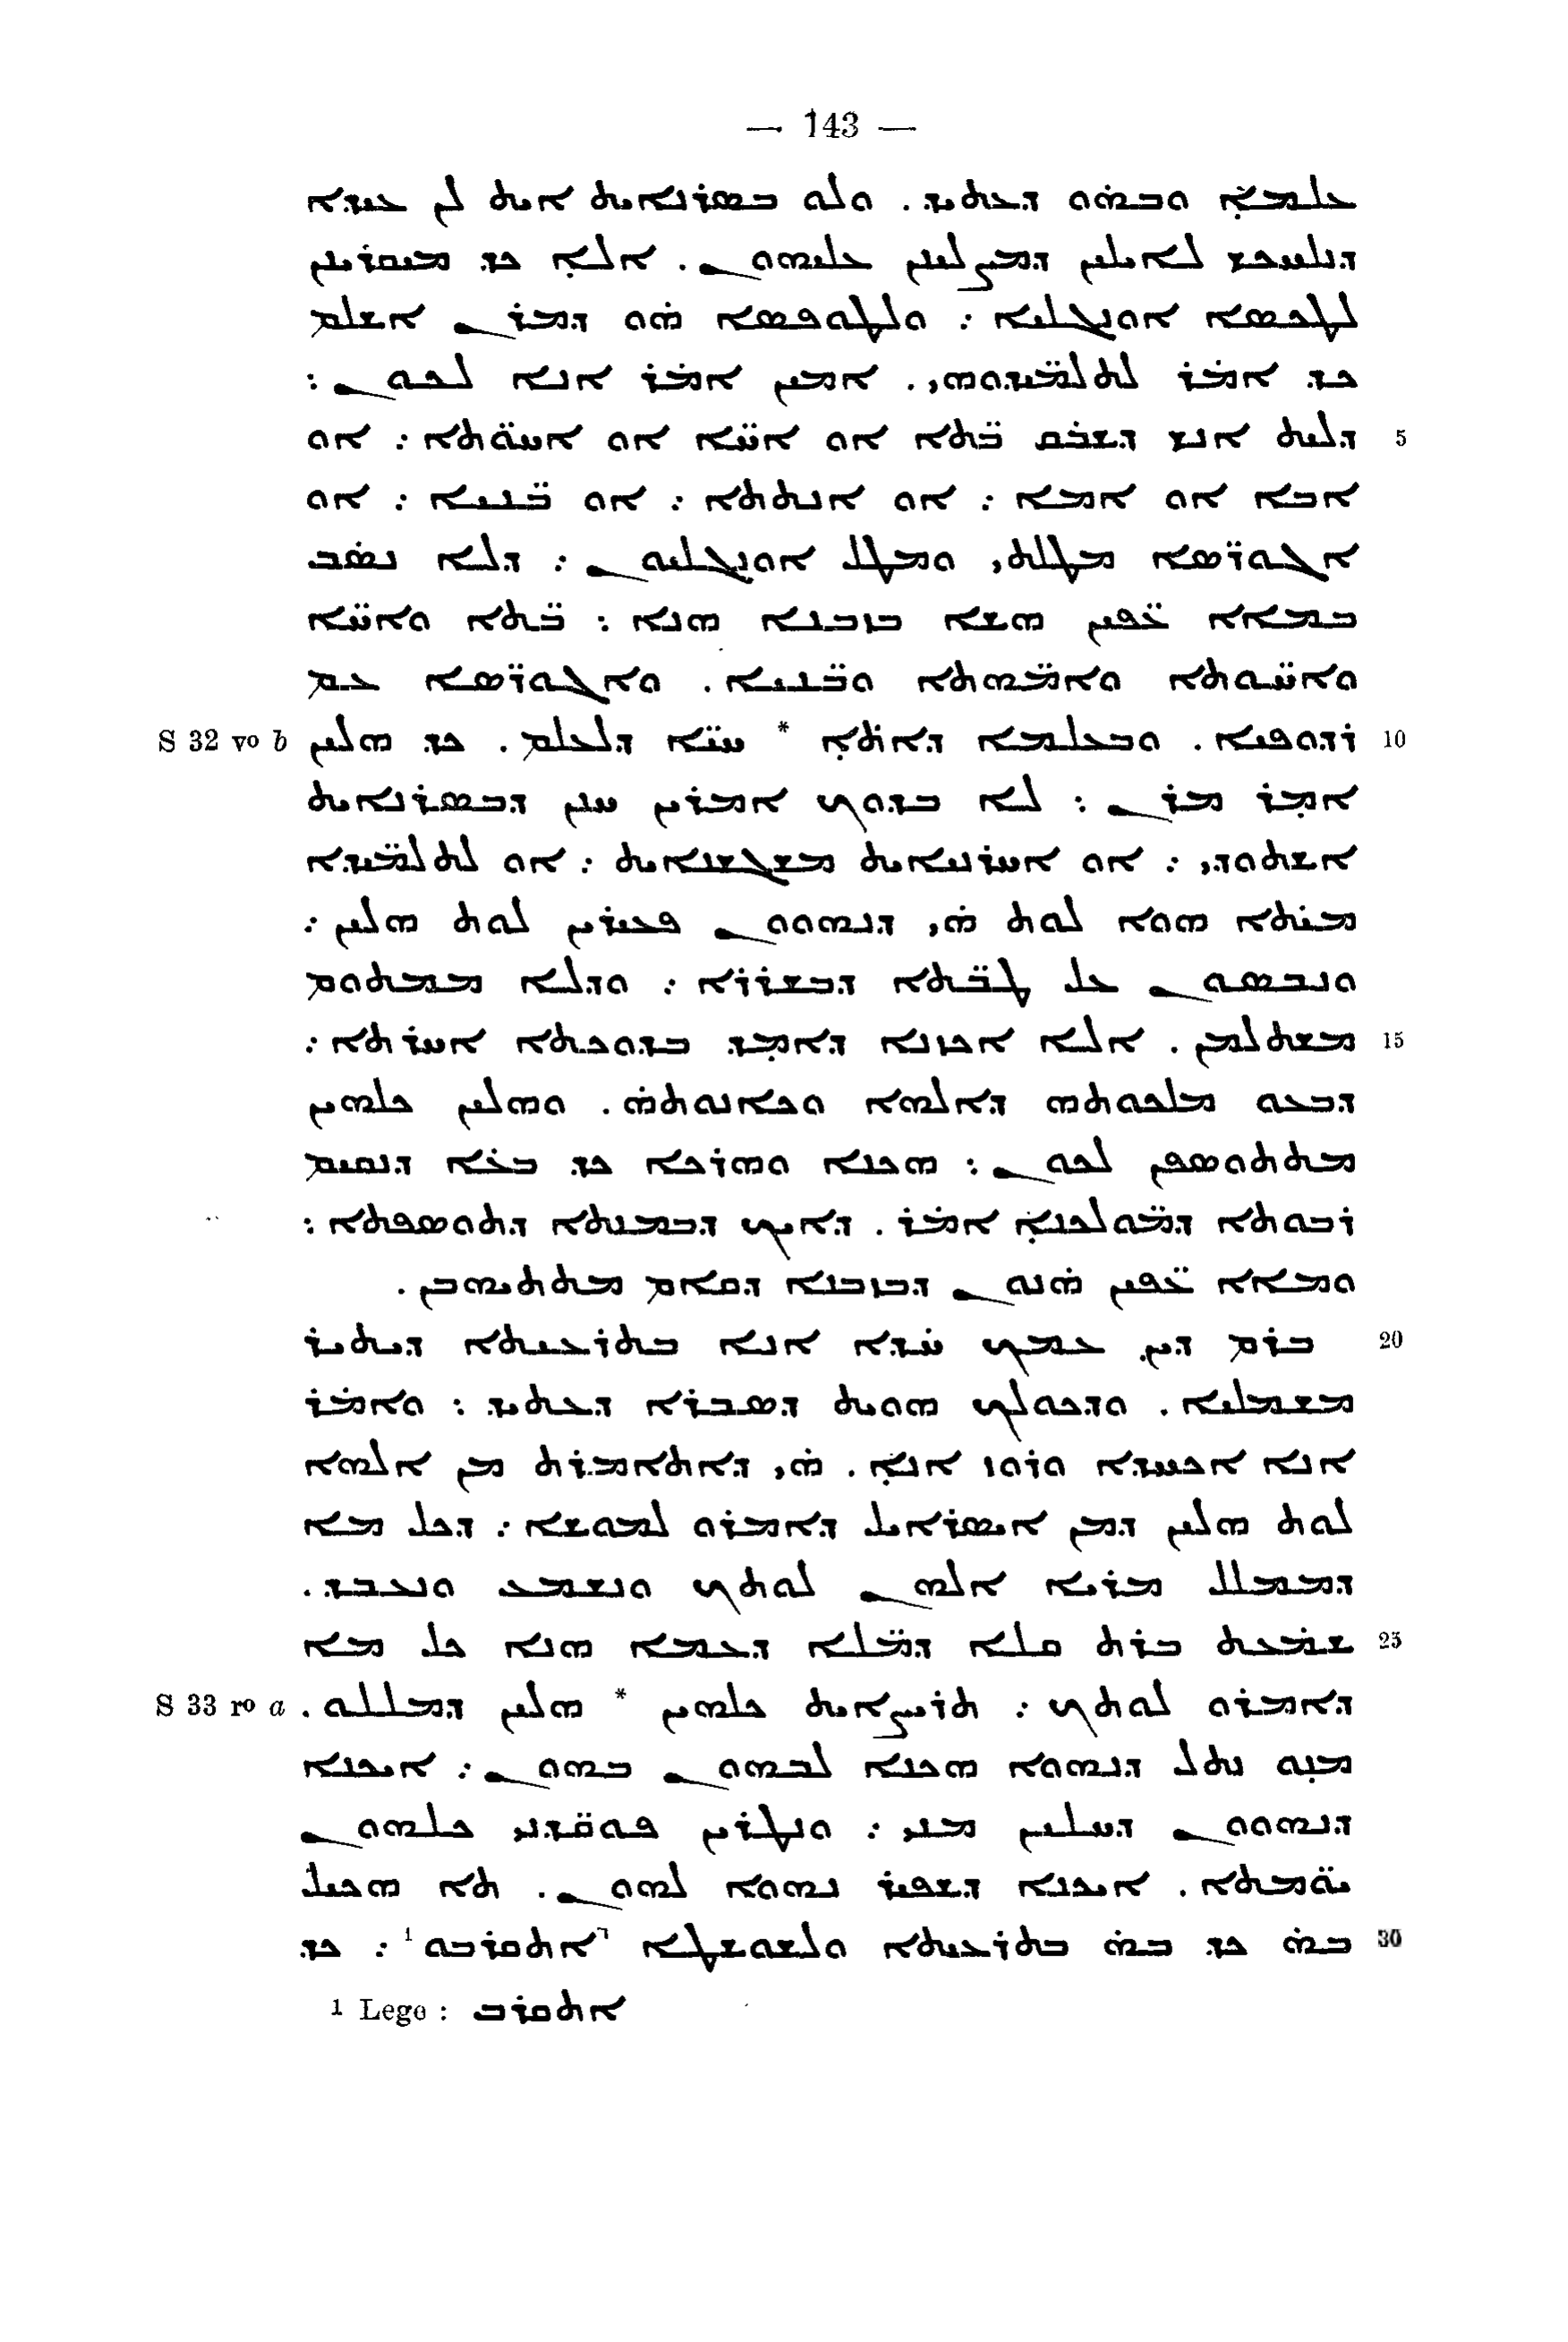 — 143 —
ܥܠܡܐ ܘܒܗܘ ܕܥܬܝܕ. ܘܠܘ ܒܣܪܢܐܝܬ ܐܝܬ ܠܢ ܥܝܕܐ
ܕܢܠܚܟܡ ܠܐܝܠܝܢ ܕܡܨܠܝܢ ܥܠܝܗܘܢ. ܐܠܐ ܟܕ ܡܝܩܪܝܢ
ܠܛܟܣܐ ܐܘܢܓܠܝܐ : ܘܠܛܘܦܣܐ ܗܘ ܕܡܪܢ ܐܫܠܡ
ܟܕ ܐܡܪ ܠܬܠܡܝܕܘܗܝ. ܐܡܝܢ ܐܡܪ ܐܢܐ ܠܟܘܢ :
ܕܠܝܬ ܐܢܫ ܕܫܒܩ ܒܬܐ ܐܘ ܐܚܐ ܐܘ ܐܚܘܬܐ : ܐܘ 5
ܐܒܐ ܐܘ ܐܡܐ : ܐܘ ܐܢܬܬܐ : ܐܘ ܒܢܝܐ : ܐܘ
ܐܓܘܪܣܐ ܡܛܠܬܝ ܘܡܛܠ ܐܘܢܓܠܝܘܢ : ܕܠܐ ܢܣܒ
ܒܡܐܐ ܥܦܝܢ ܗܫܐ ܒܙܒܢܐ ܗܢܐ : ܒܬܐ ܘܐܚܐ
ܘܐܚܘܬܐ ܘܐܡܗܬܐ ܘܒܢܝܐ. ܘܐܓܘܪܣܐ ܥܡ
S 32 vo b ܪܕܘܦܝܐ. ܘܒܥܠܡܐ ܕܐܬܐ * ܚܝܐ ܕܠܥܠܡ. ܟܕ ܗܠܝܢ 10
ܐܡܪ ܡܪܢ : ܠܐ ܒܕܘܟ ܐܡܪܝܢ ܚܢܢ ܕܒܣܪܢܐܝܬ
ܐܫܬܘܕܝ : ܐܘ ܐܚܪܢܝܐܝܬ ܡܫܓܢܐܝܬ : ܐܘ ܠܬܠܡܝܕܐ
ܡܝܬܐ ܗܘܐ ܠܘܬ ܗܝ ܕܢܗܘܘܢ ܟܫܝܪܝܢ ܠܘܬ ܗܠܝܢ :
ܘܢܒܣܘܢ ܥܠ ܛܒܬܐ ܕܒܫܪܪܐ : ܘܕܠܐ ܡܡܬܘܡ
ܡܫܬܠܡܢ. ܐܠܐ ܐܟܙܢܐ ܕܐܡܪ ܒܕܘܟܬܐ ܐܚܪܬܐ : 15
ܕܒܥܘ ܡܠܟܘܬܗ ܕܐܠܗܐ ܘܟܐܢܘܬܗ. ܘܗܠܝܢ ܟܠܗܝܢ
ܡܬܬܘܣܦܢ ܠܟܘܢ : ܗܟܢܐ ܘܗܪܟܐ ܟܕ ܒܥܐ ܕܢܩܝܡ
ܙܟܘܬܐ ܕܡܘܠܟܢܐ ܐܡܪ. ܕܐܝܟ ܕܒܡܢܬܐ ܕܬܘܣܦܬܐ :
ܘܡܐܐ ܥܦܝܢ ܗܢܘܢ ܕܒܙܒܢܐ ܕܩܐܡ ܡܬܝܗܒܢ.
ܒܪܡ ܕܝܢ ܥܡܟ ܚܕܐ ܐܢܐ ܒܬܪܥܝܬܐ ܕܝܬܝܪ 20
ܡܫܡܠܝܐ. ܘܕܟܘܠܟ ܗܘܝܬ ܕܣܒܪܐ ܕܥܬܝܕ : ܘܐܡܪ
ܐܢܐ ܐܟܚܕܐ ܘܪܘܙ ܐܢܐ. ܗܝ ܕܐܬܐܡܪܬ ܡܢ ܐܠܗܐ
ܠܘܬ ܗܠܝܢ ܕܡܢ ܐܝܣܪܐܝܠ ܕܐܡܪܘ ܠܡܘܫܐ : ܕܟܠ ܡܐ
ܕܡܡܠܠ ܡܪܝܐ ܐܠܗܢ ܠܘܬܟ ܘܢܫܡܥ ܘܢܥܒܕ.
ܫܡܥܬ ܒܪܬ ܩܠܐ ܕܡܠܐ ܕܥܡܐ ܗܢܐ ܟܠ ܡܐ 25
S 33 ro a ܕܐܡܪܘ ܠܘܬܟ : ܬܪܝܨܐܝܬ ܟܠܗܝܢ * ܗܠܝܢ ܕܡܠܠܘ.
ܡܢܘ ܢܬܠ ܕܢܗܘܐ ܗܟܢܐ ܠܒܗܘܢ ܒܗܘܢ : ܐܝܟܢܐ
ܕܢܗܘܘܢ ܕܚܠܝܢ ܡܢܝ : ܘܢܛܪܝܢ ܦܘܩܕܢܝ ܟܠܗܘܢ
ܝܘܡܬܐ. ܐܝܟܢܐ ܕܫܦܝܪ ܢܗܘܐ ܠܗܘܢ. ܬܐ ܗܟܝܠ
ܒܗ ܟܕ ܒܗ ܒܬܪܥܝܬܐ ܘܠܫܘܫܛܐ ⌜ܐܬܩܪܒܘ¹ : ܟܕ 30
¹ Lege : ܐܬܩܪܒ